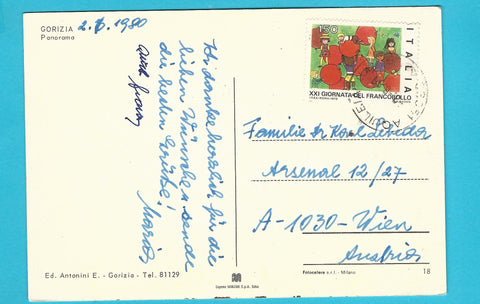 GORIZIA
Panorama
2.6.1980
Ich danke herzlich für die
lieben Wünsche u. sende
die besten Grüße!
Maria
auch Franz
Ed. Antonini E. - Gorizia - Tel. 81129
150
ITALIA
XXI GIORNATA DEL FRANCOBOLLO
Familie Dr Karl
Arsenal 12/27
A-1030-Wien
Austria
Fotocelere s.r.l. - Milano
18